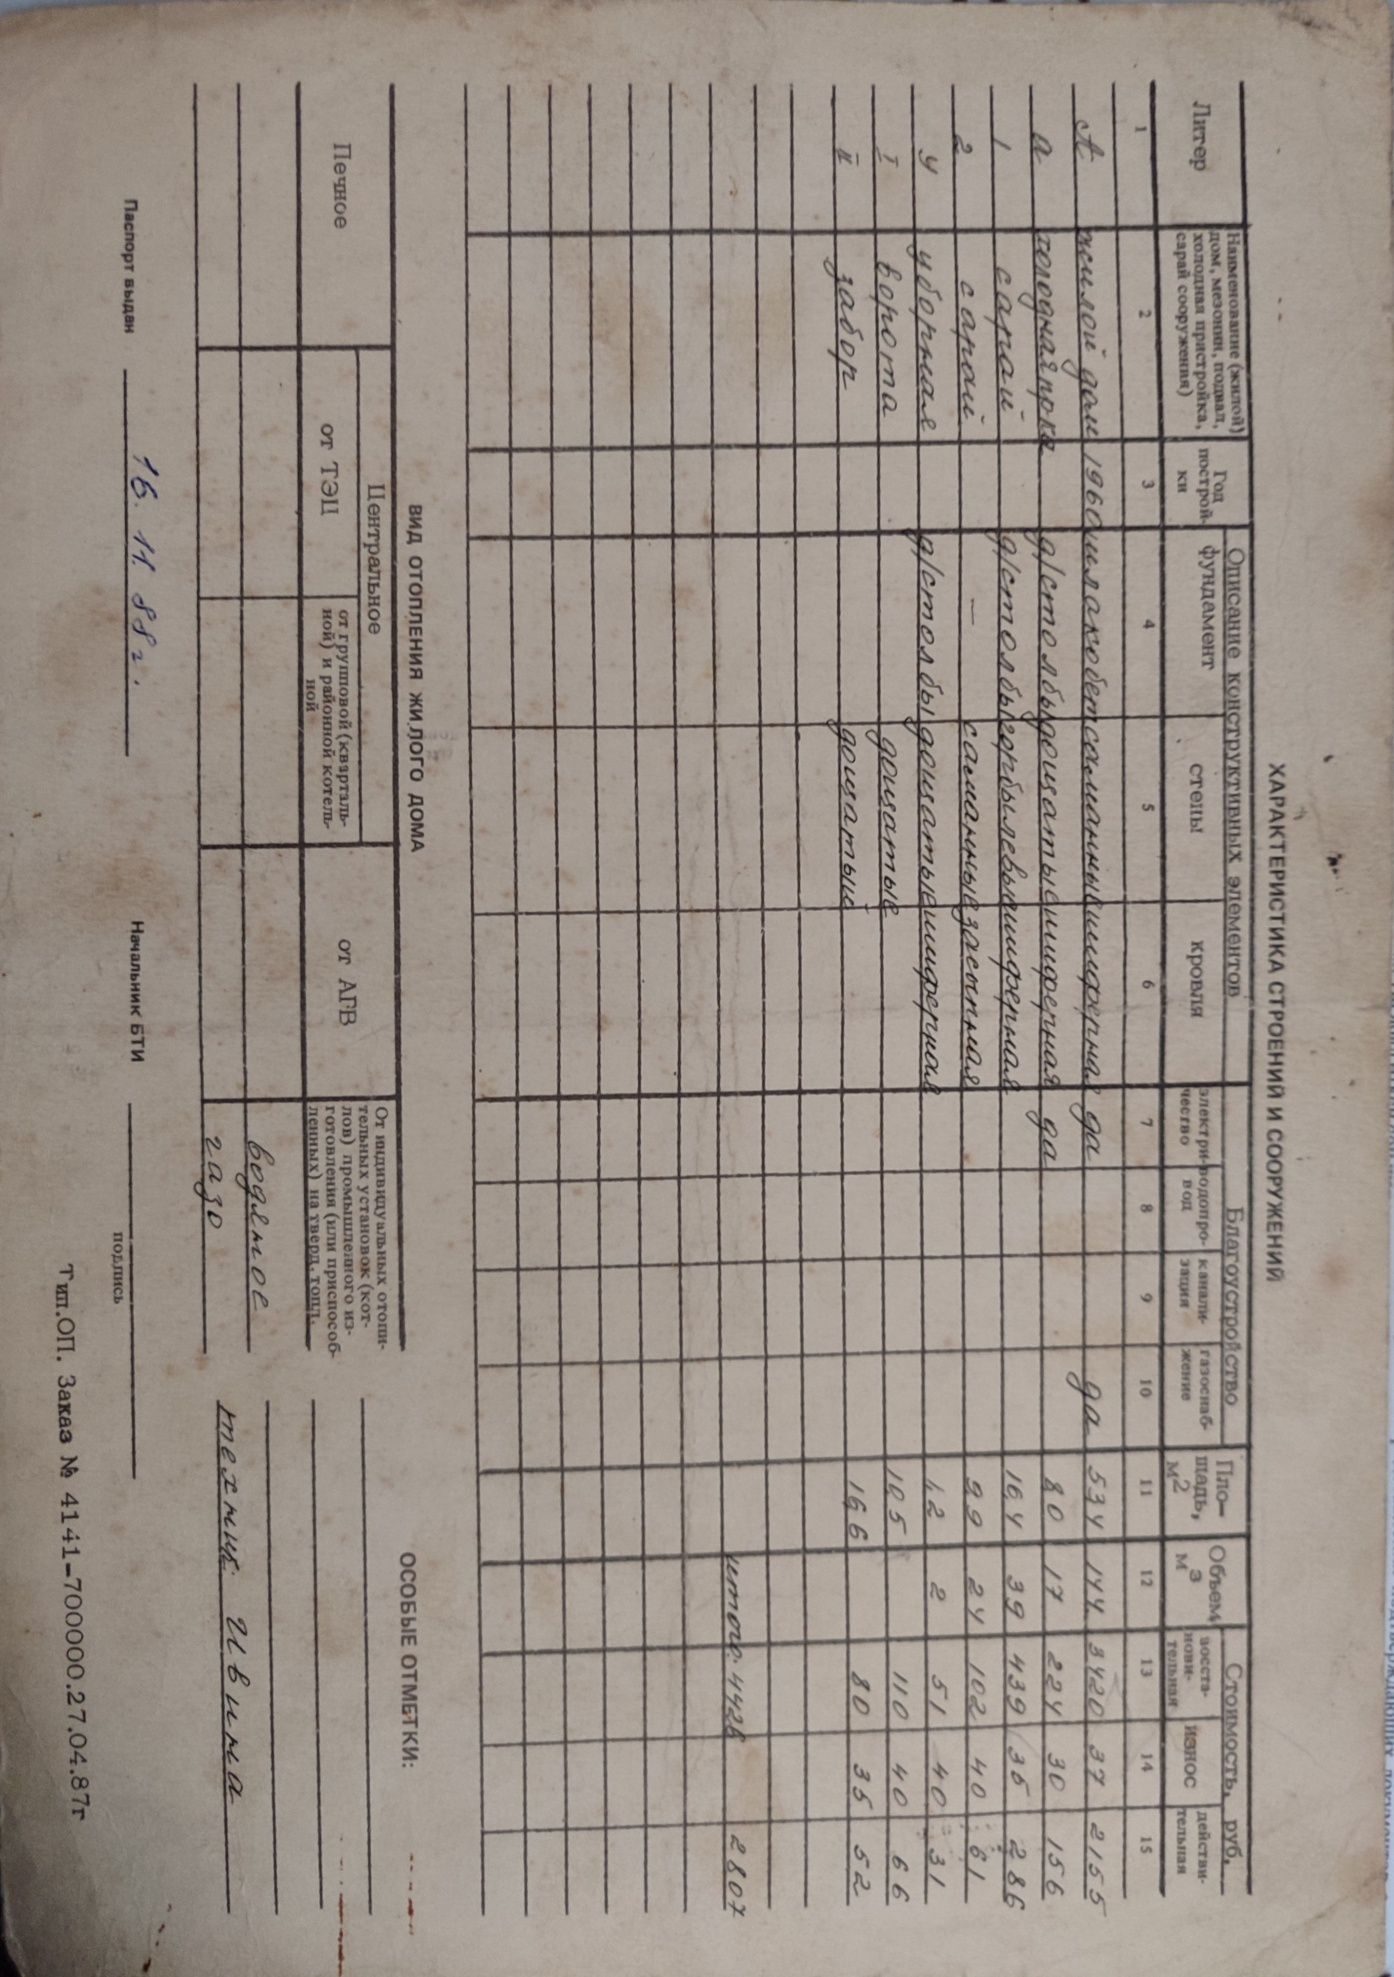 ХАРАКТЕРИСТИКА СТРОЕНИЙ И СООРУЖЕНИЙ
Литер | Наименование (жилой) дом, мезонин, подвал, холодная пристройка, сарай сооружения) | Год построй- ки | Описание конструктивных элементов | Благоустройство | Пло- щадь, м2 | Объем м3 | Стоимость, руб.
фундамент | стены | кровля | электри- чество | водопро- вод | канали- зация | газоснаб- жение | восста- нови- тельная | износ | действи- тельная
1 | 2 | 3 | 4 | 5 | 6 | 7 | 8 | 9 | 10 | 11 | 12 | 13 | 14 | 15
А | жилой дом | 1960 | шлакобет | саманные | шиферная | да | да | 53,4 | 144 | 3420 | 37 | 2155
а | холодная | д/столбы | дощатые | шиферная | да | 8,0 | 17 | 224 | 30 | 156
1 | сарай | д/столбы | горбылевые | шиферная | 16,4 | 39 | 439 | 35 | 286
2 | сарай | — | саманные | засыпная | 9,9 | 24 | 102 | 40 | 61
У | уборная | д/столбы | дощатые | шиферная | 1,2 | 2 | 51 | 40 | 31
I | ворота | дощатые | 10,5 | 110 | 40 | 66
II | забор | дощатый | 16,6 | 80 | 35 | 52
итого: 4426 | 2807
ВИД ОТОПЛЕНИЯ ЖИЛОГО ДОМА
ОСОБЫЕ ОТМЕТКИ:
Печное | Центральное | от АГВ | От индивидуальных отопи- тельных установок (кот- лов) промышленного из- готовления (или приспособ- ленных) на тверд. топл.
от ТЭЦ | от групповой (кварталь- ной) и районной котель- ной
водяное
газо
техник Ивина
Паспорт выдан 16. 11. 88 г.
Начальник БТИ
подпись
Тип.ОП. Заказ № 4141-700000.27.04.87г